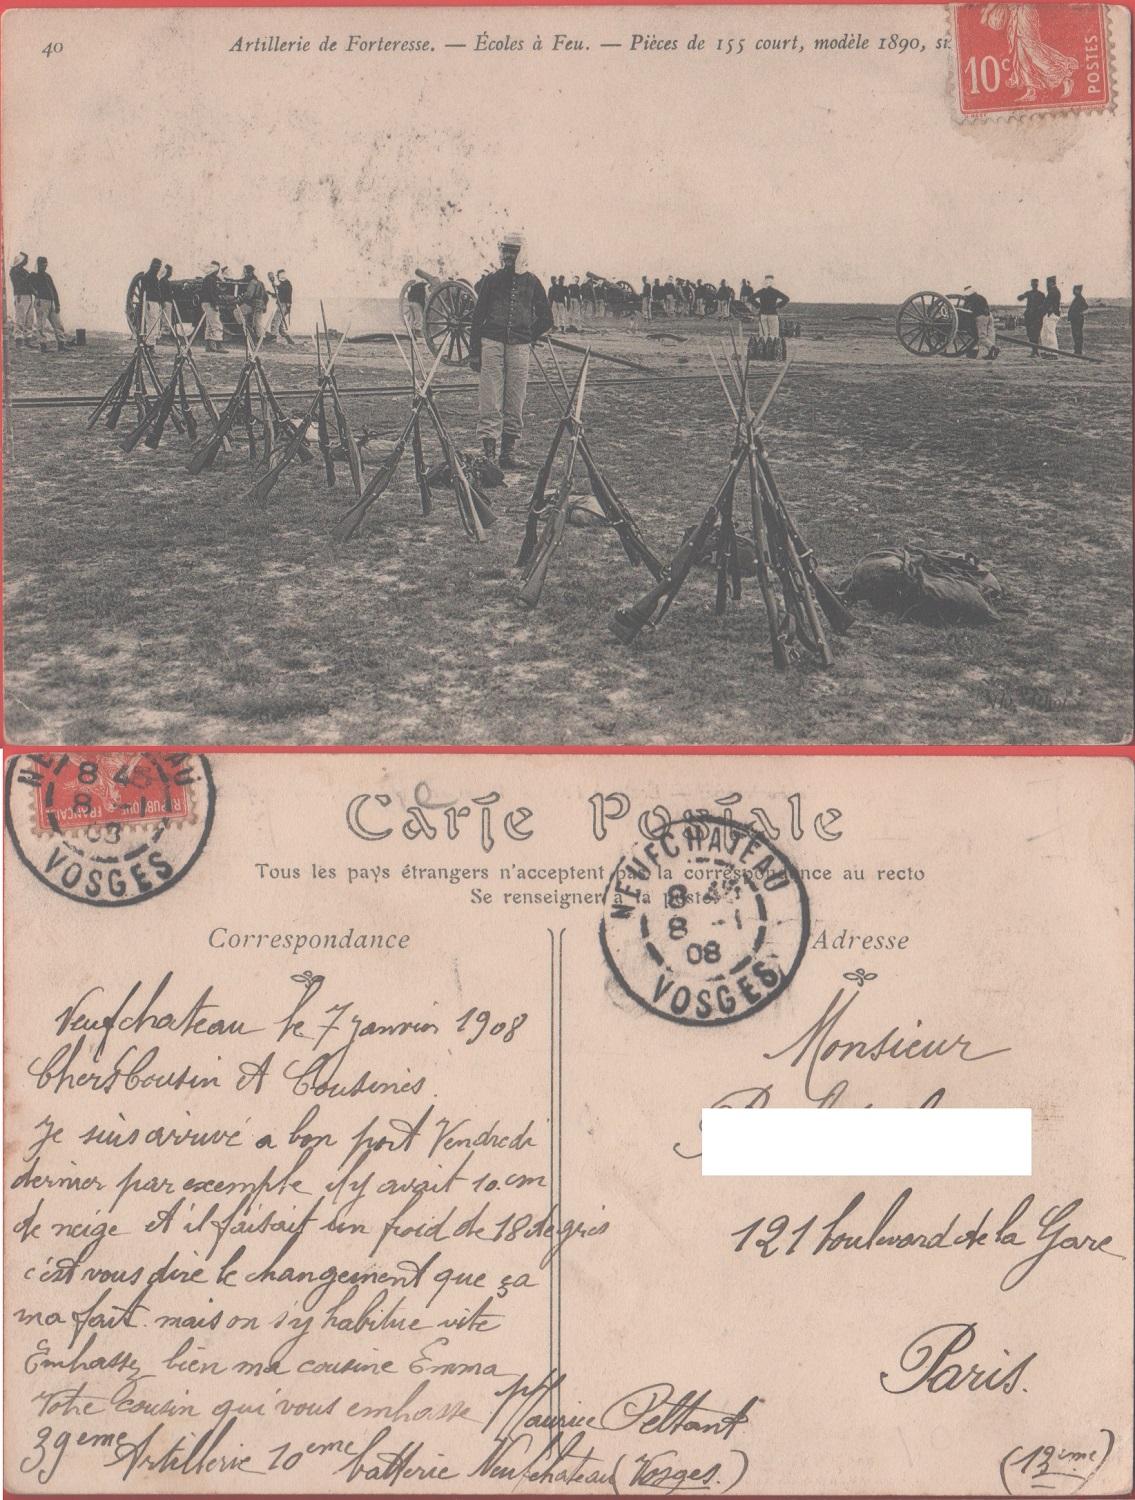 40
Artillerie de Forteresse. — Écoles à Feu. — Pièces de 155 court, modèle 1890,
10c
POSTES
ND. Phot.
NEUFCHATEAU
8 4
8 -1
08
VOSGES
REPUBLIQUE FRANÇAISE
Carte Postale
Tous les pays étrangers n'acceptent pas la correspondance au recto
Se renseigner à la poste
NEUFCHATEAU
8
8 -1
08
VOSGES
Correspondance
Neufchateau le 7 janvier 1908
Chers Cousin et Cousines.
Je suis arrivé a bon port Vendredi
dernier par exemple il y avait 10.cm
de neige et il faisait un froid de 18 degrés
c'est vous dire le changement que ça
ma fait. mais on s'y habitue vite
Embassez bien ma cousine Emma
Votre cousin qui vous embasse Maurice Peltant
39eme Artillerie 10eme batterie Neufchateau (Vosges.)
Adresse
Monsieur
121 boulevard de la Gare
Paris.
(13ème)